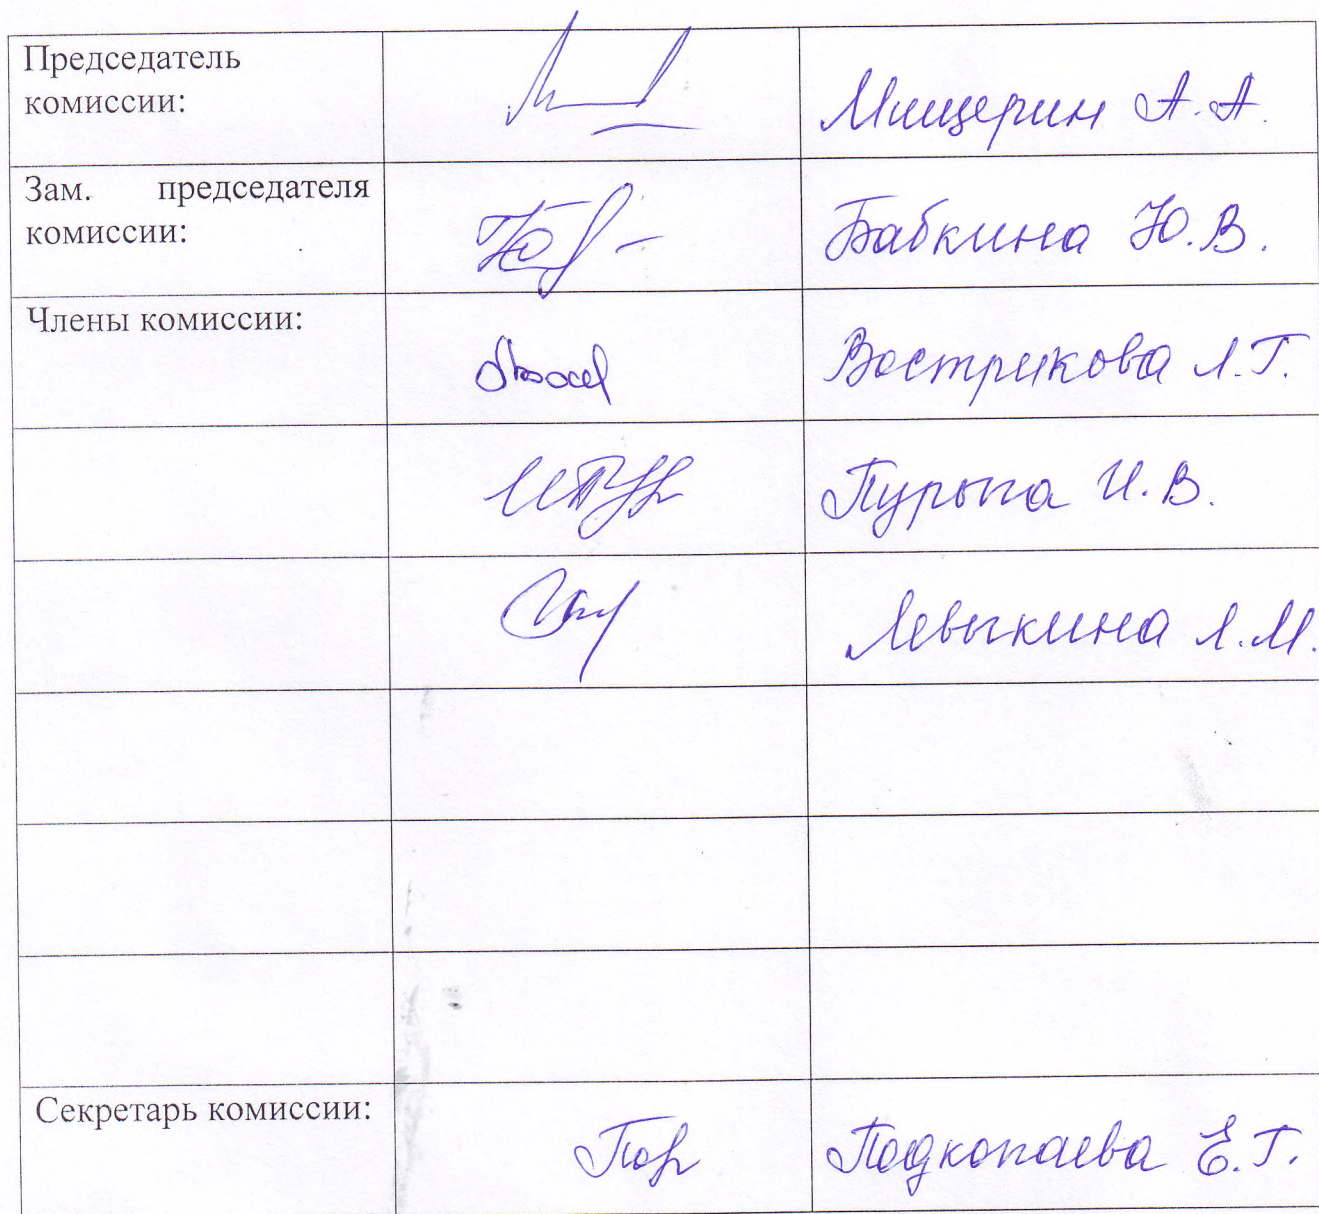 Председатель
комиссии:
Мищерин А.А.
Зам. председателя
комиссии:
Бабкина Ю.В.
Члены комиссии:
Вострикова Л.Г.
Пурыга И.В.
Левыкина Л.М.
Секретарь комиссии:
Подкопаева Е.Г.